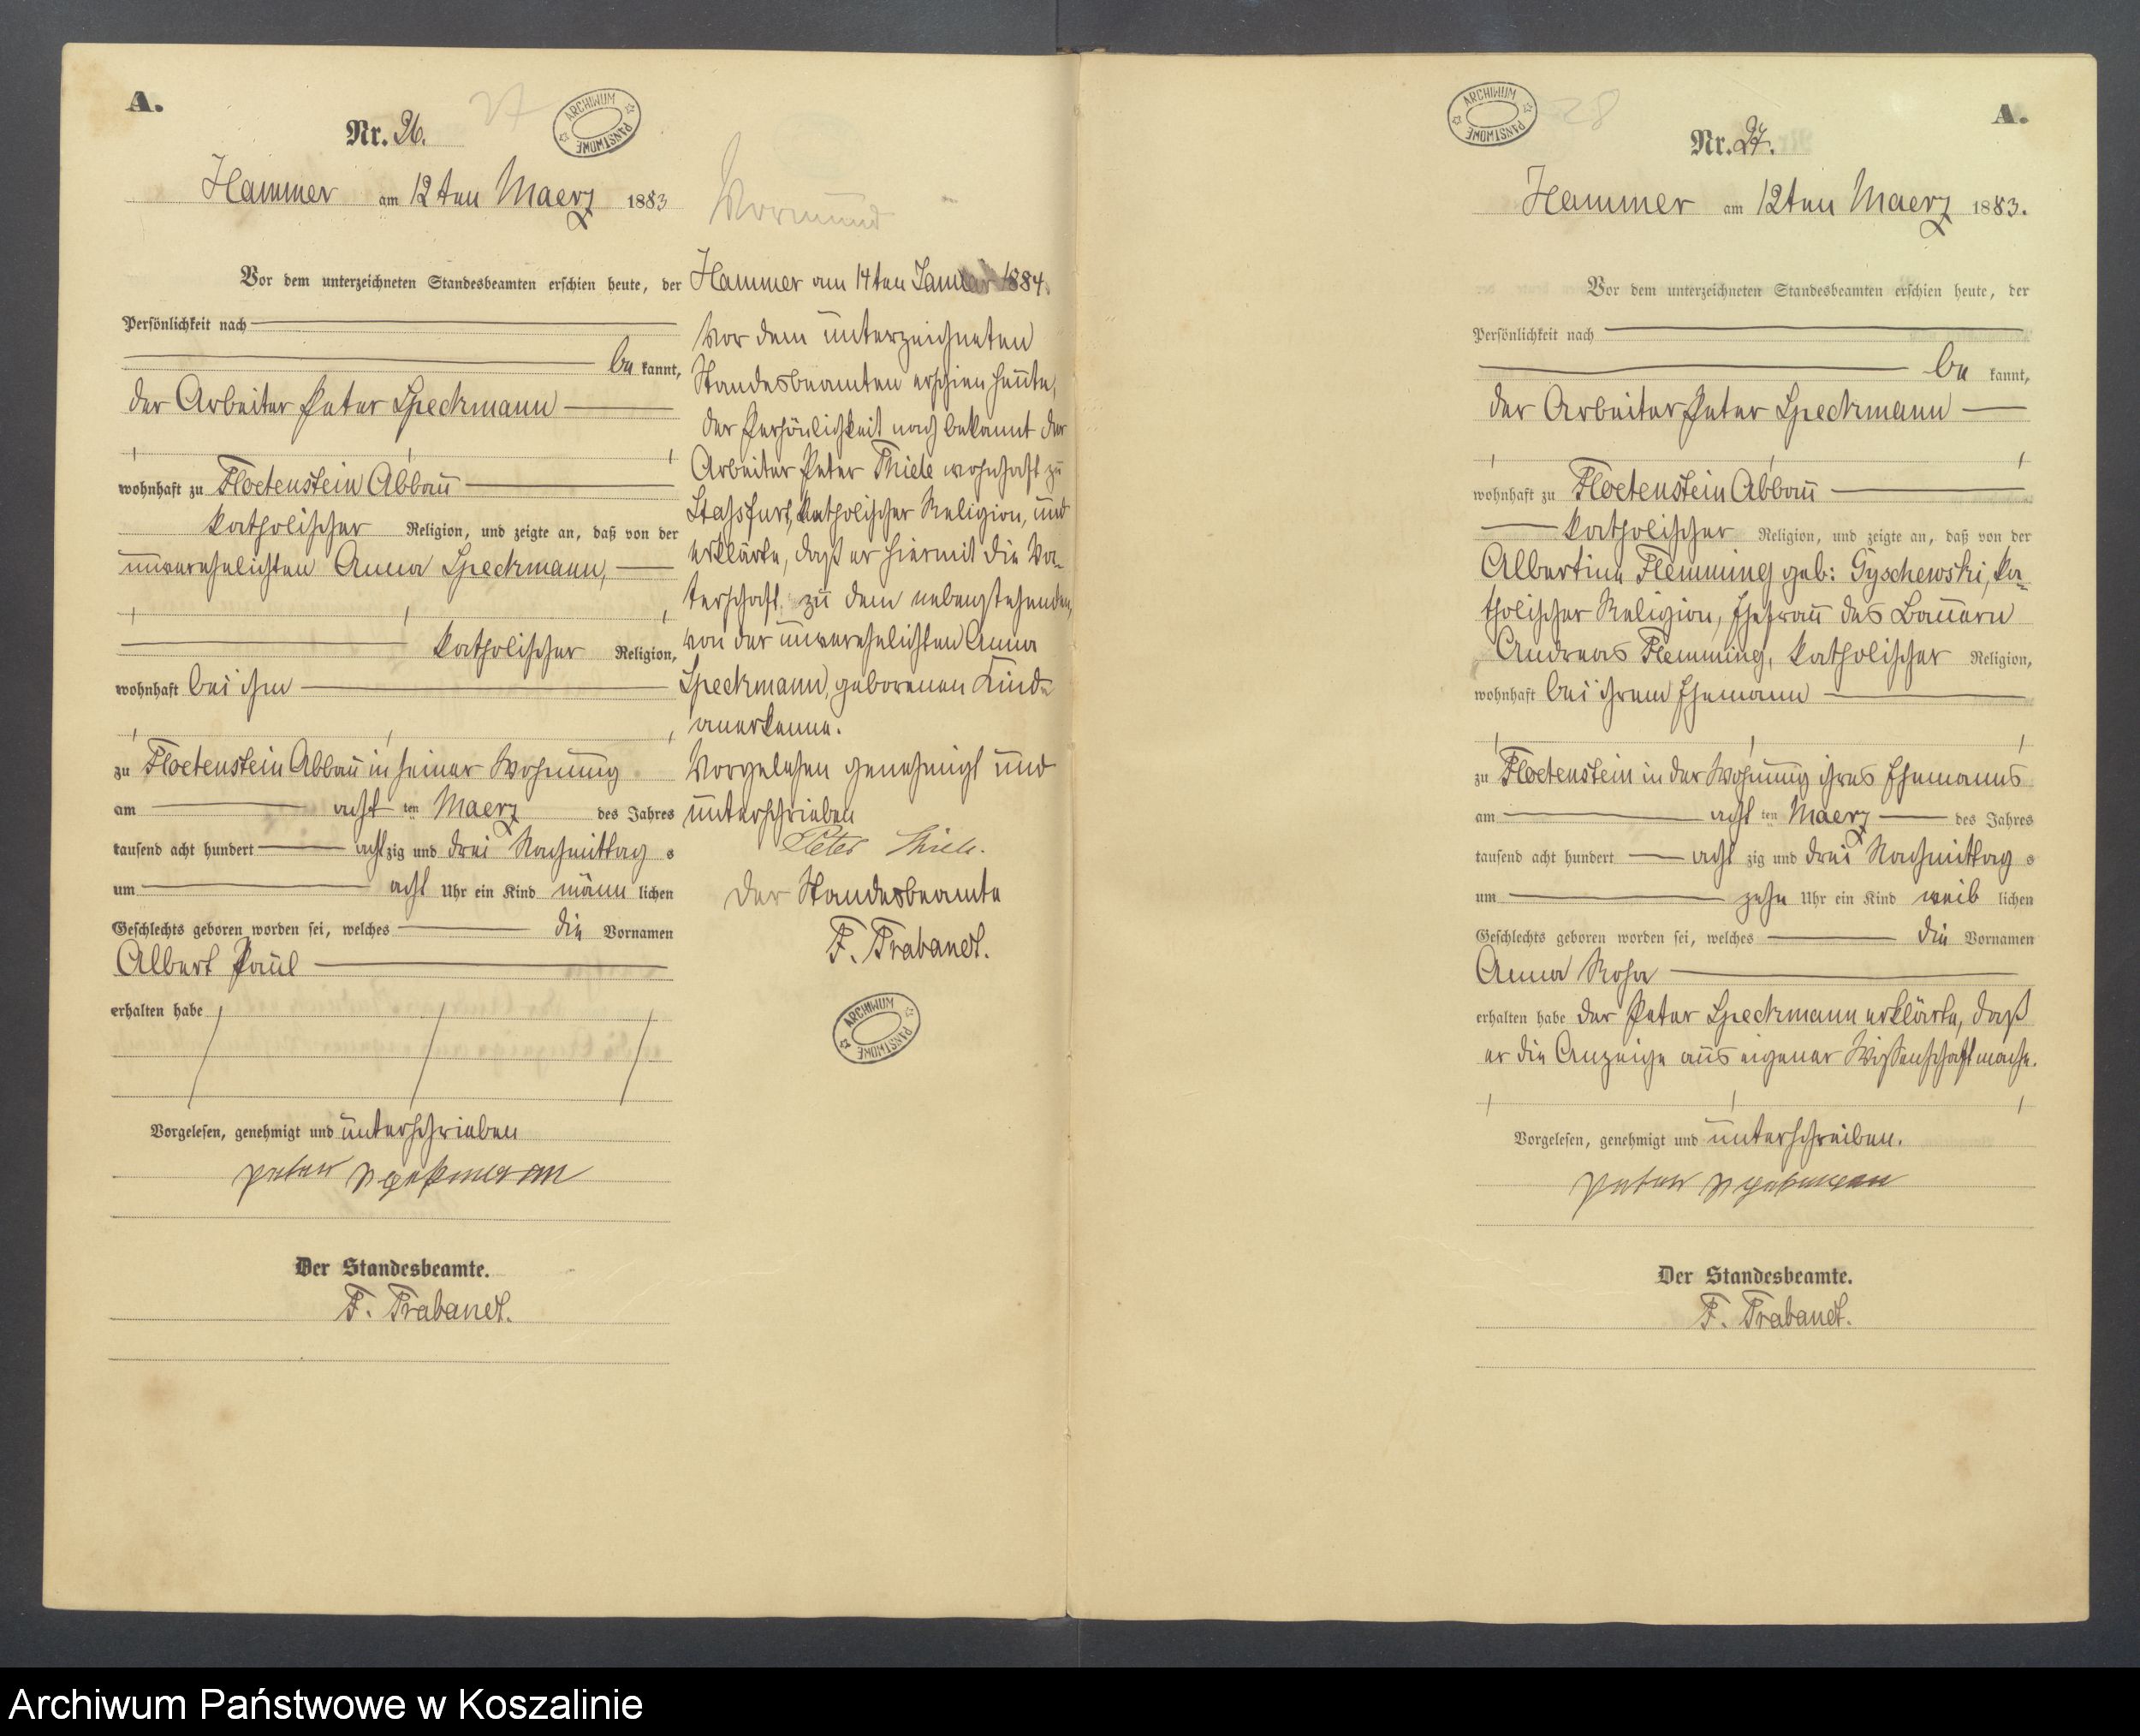 A.
Nr. 26.
27
ARCHIWUM PAŃSTWOWE
Hammer am 12ten Maerz 1883
Vor dem unterzeichneten Standesbeamten erschien heute, der
Persönlichkeit nach
be kannt,
der Arbeiter Peter Speckmann
wohnhaft zu Floetenstein Abbau
katholischer Religion, und zeigte an, daß von der
unverehelichten Anna Speckmann,
katholischer Religion,
wohnhaft bei ihm
zu Floetenstein Abbau in seiner Wohnung
am acht ten Maerz des Jahres
tausend acht hundert achtzig und drei Nachmittag s
um acht Uhr ein Kind männ lichen
Geschlechts geboren worden sei, welches die Vornamen
Albert Paul
erhalten habe
Vorgelesen, genehmigt und unterschrieben
Peter
Der Standesbeamte.
F. Trabandt.
Vormund
Hammer am 14ten Januar 1884.
Vor dem unterzeichneten
Standesbeamten erschien heute,
der Persönlichkeit nach bekannt der
Arbeiter Peter Thiele wohnhaft zu
Stassfurt, katholischer Religion, und
erklärte, daß er hiermit die Va-
terschaft zu dem nebenstehenden,
von der unverehelichten Anna
Speckmann, geborenen Kinde
anerkenne.
Vorgelesen genehmigt und
unterschrieben
Peter Thiele.
Der Standesbeamte
F. Trabandt.
ARCHIWUM PAŃSTWOWE
ARCHIWUM PAŃSTWOWE
28
A.
Nr. 27.
Hammer am 12ten Maerz 1883.
Vor dem unterzeichneten Standesbeamten erschien heute, der
Persönlichkeit nach
be kannt,
der Arbeiter Peter Speckmann
wohnhaft zu Floetenstein Abbau
katholischer Religion, und zeigte an, daß von der
Albertine Flemming geb: Gyschewski, ka-
tholischer Religion, Ehefrau des Bauern
Andreas Flemming, katholischer Religion,
wohnhaft bei ihrem Ehemann
zu Floetenstein in der Wohnung ihres Ehemanns
am acht ten Maerz des Jahres
tausend acht hundert acht zig und drei Nachmittag s
um zehn Uhr ein Kind weib lichen
Geschlechts geboren worden sei, welches die Vornamen
Anna Rosa
erhalten habe der Peter Speckmann erklärte, daß
er die Anzeige aus eigener Wissenschaft mache.
Vorgelesen, genehmigt und unterschreiben.
Peter
Der Standesbeamte.
F. Trabandt.
Archiwum Państwowe w Koszalinie